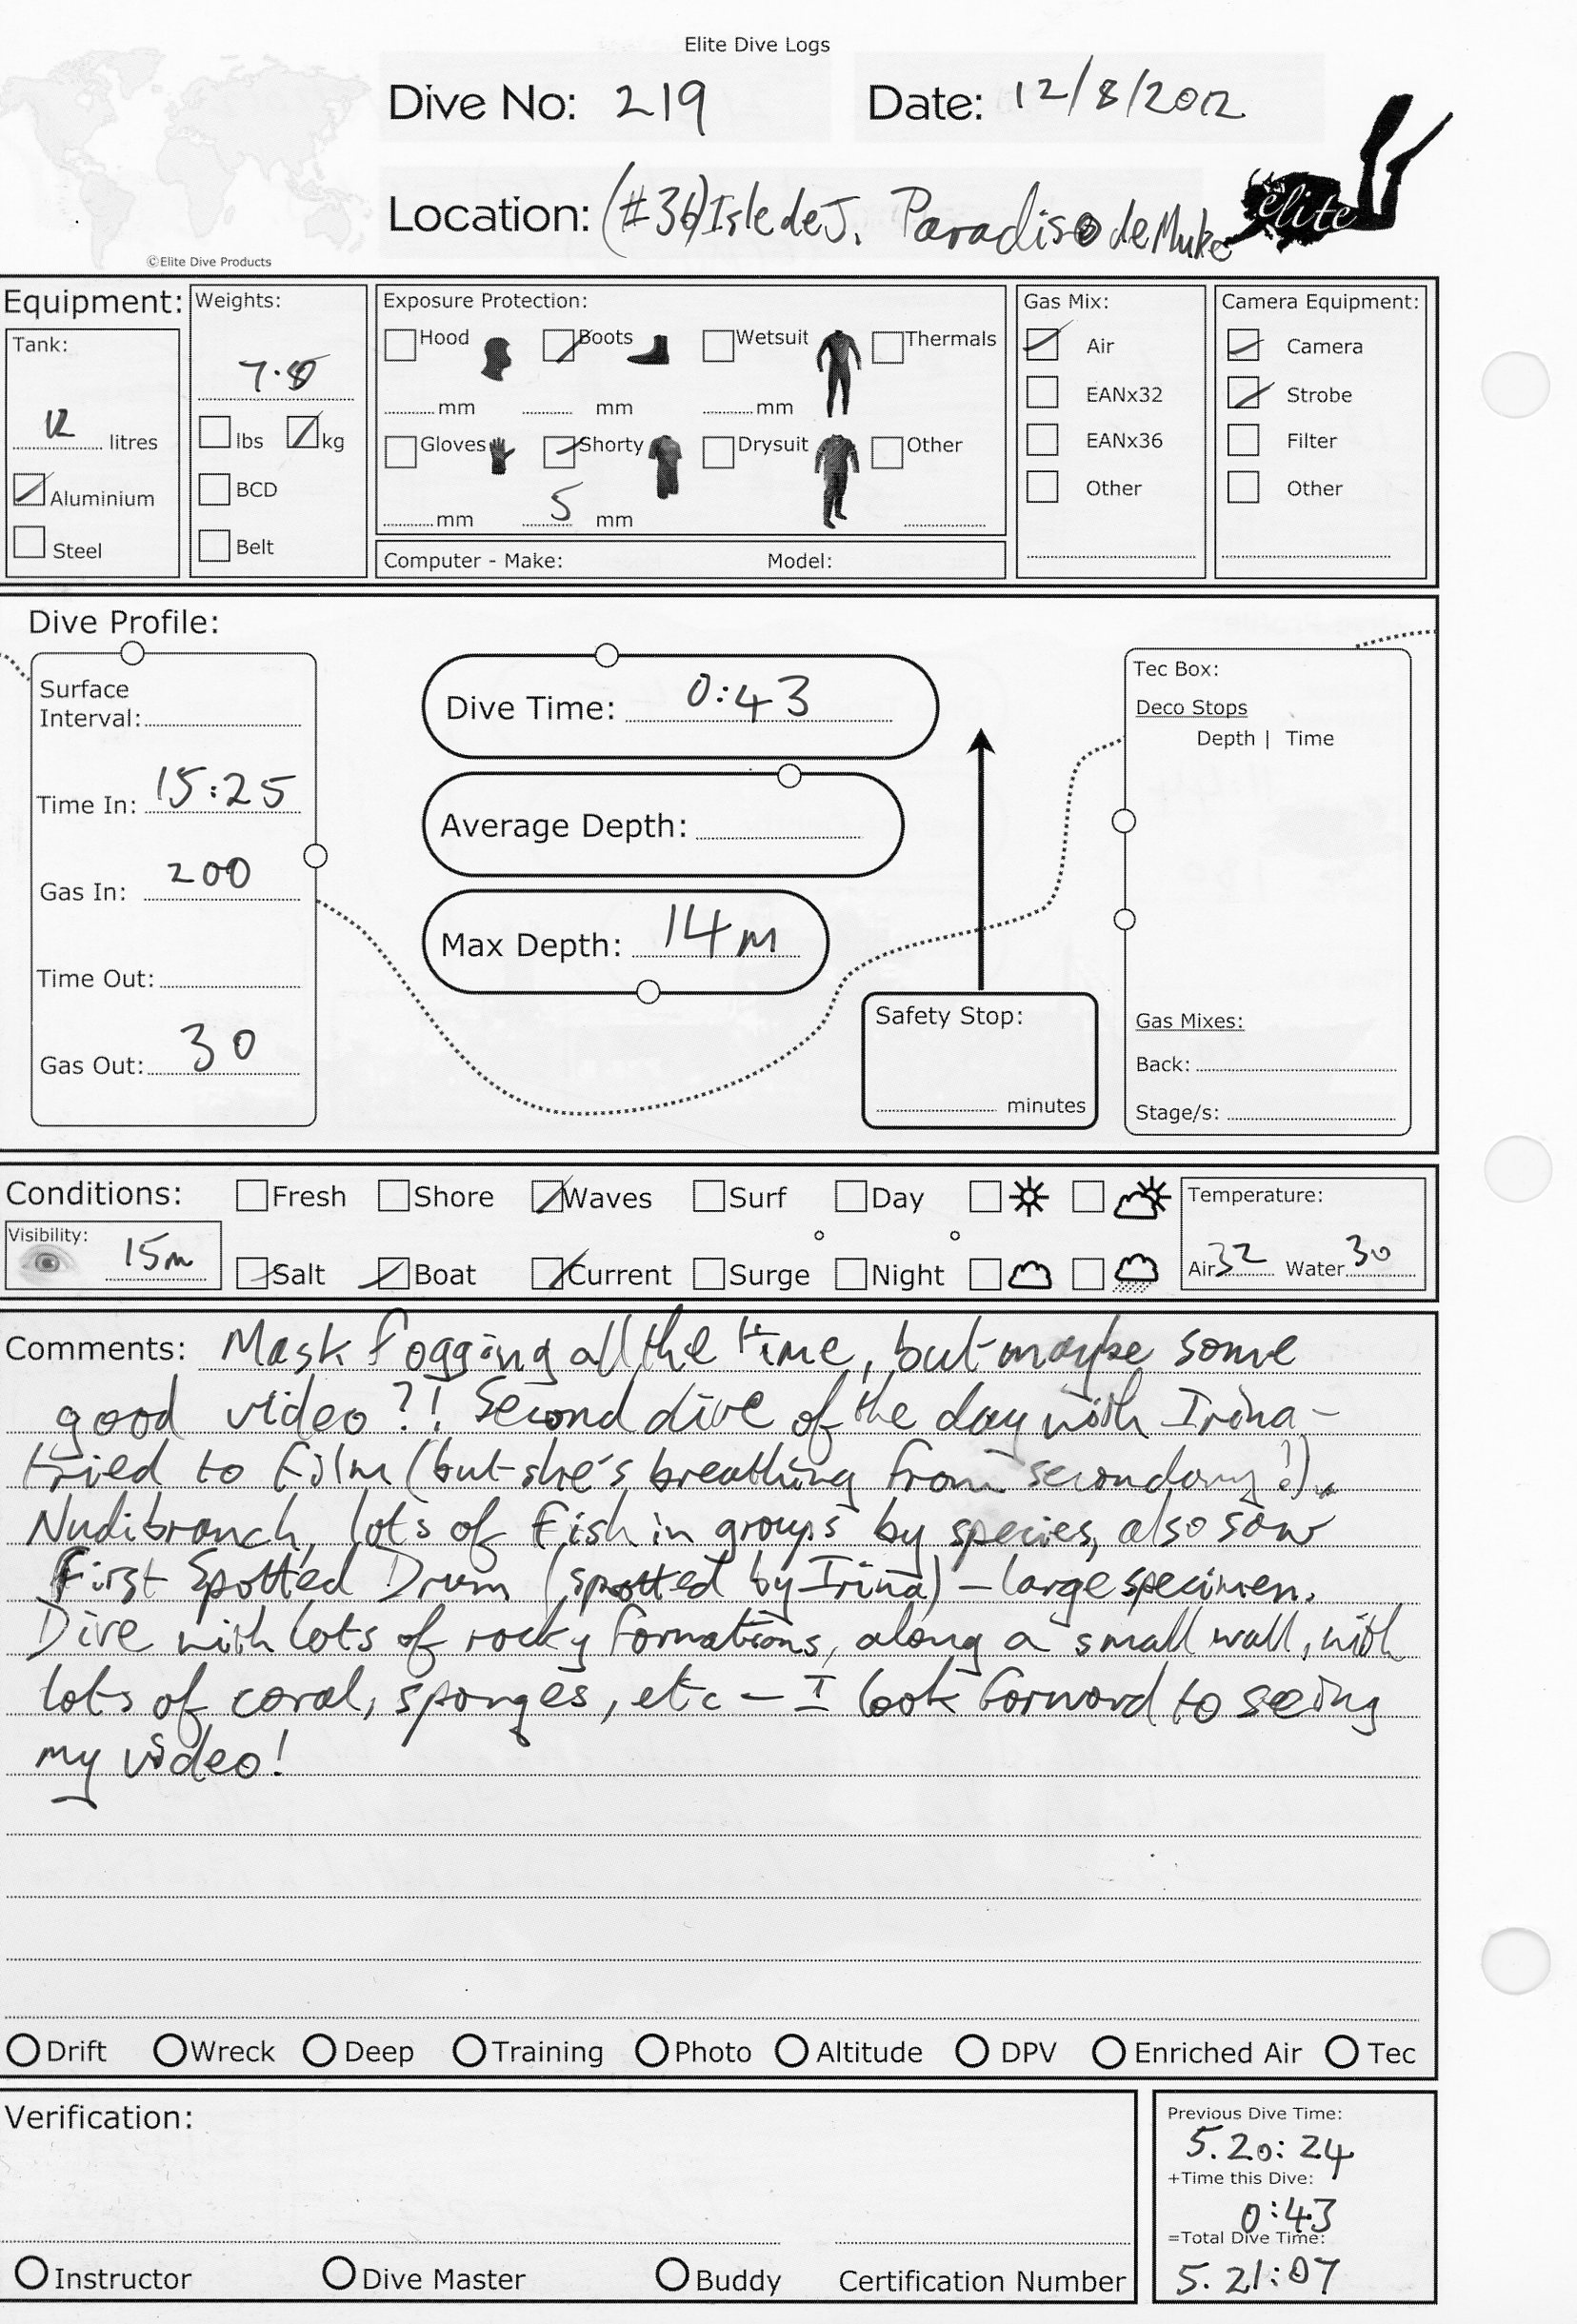 Elite Dive Logs
Dive No: 219 Date: 12/8/2012
Location: (#36) Isle de J. Paradiso de
élite
©Elite Dive Products
Equipment:
Tank:
12 litres
Aluminium
Steel
Weights:
7.5
lbs kg
BCD
Belt
Exposure Protection:
Hood Boots Wetsuit Thermals
mm mm mm
Gloves Shorty Drysuit Other
mm 5 mm
Computer - Make: Model:
Gas Mix:
Air
EANx32
EANx36
Other
Camera Equipment:
Camera
Strobe
Filter
Other
Dive Profile:
Surface
Interval:
Time In: 15:25
Gas In: 200
Time Out:
Gas Out: 30
Dive Time: 0:43
Average Depth:
Max Depth: 14m
Safety Stop:
minutes
Tec Box:
Deco Stops
Depth | Time
Gas Mixes:
Back:
Stage/s:
Conditions:
Visibility:
15m
Fresh Shore Waves Surf Day
Salt Boat Current Surge Night
Temperature:
Air 32 Water 30
Comments: Mask fogging all the time, but maybe some
good video?! Second dive of the day with Irina -
tried to film (but she's breathing from secondary!).
Nudibranch, lots of fish in groups by species, also saw
First Spotted Drum (spotted by Irina) - large specimen.
Dive with lots of rocky formations, along a small wall, with
lots of coral, sponges, etc - I look forward to seeing
my video!
Drift Wreck Deep Training Photo Altitude DPV Enriched Air Tec
Verification:
Instructor Dive Master Buddy Certification Number
Previous Dive Time:
5.20:24
+Time this Dive:
0:43
=Total Dive Time:
5.21:07